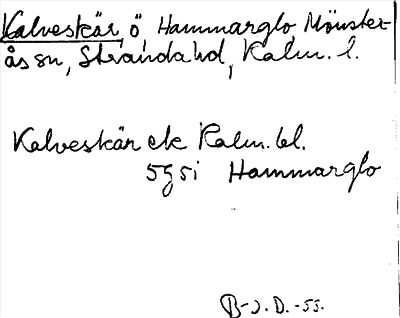 Kalveskär, ö, Hammarglo, Mönster-
ås sn, Stranda hd, Kalm. l.
Kalveskär ek Kalm. bl.
5g5i Hammarglo
B-J. D. -55.